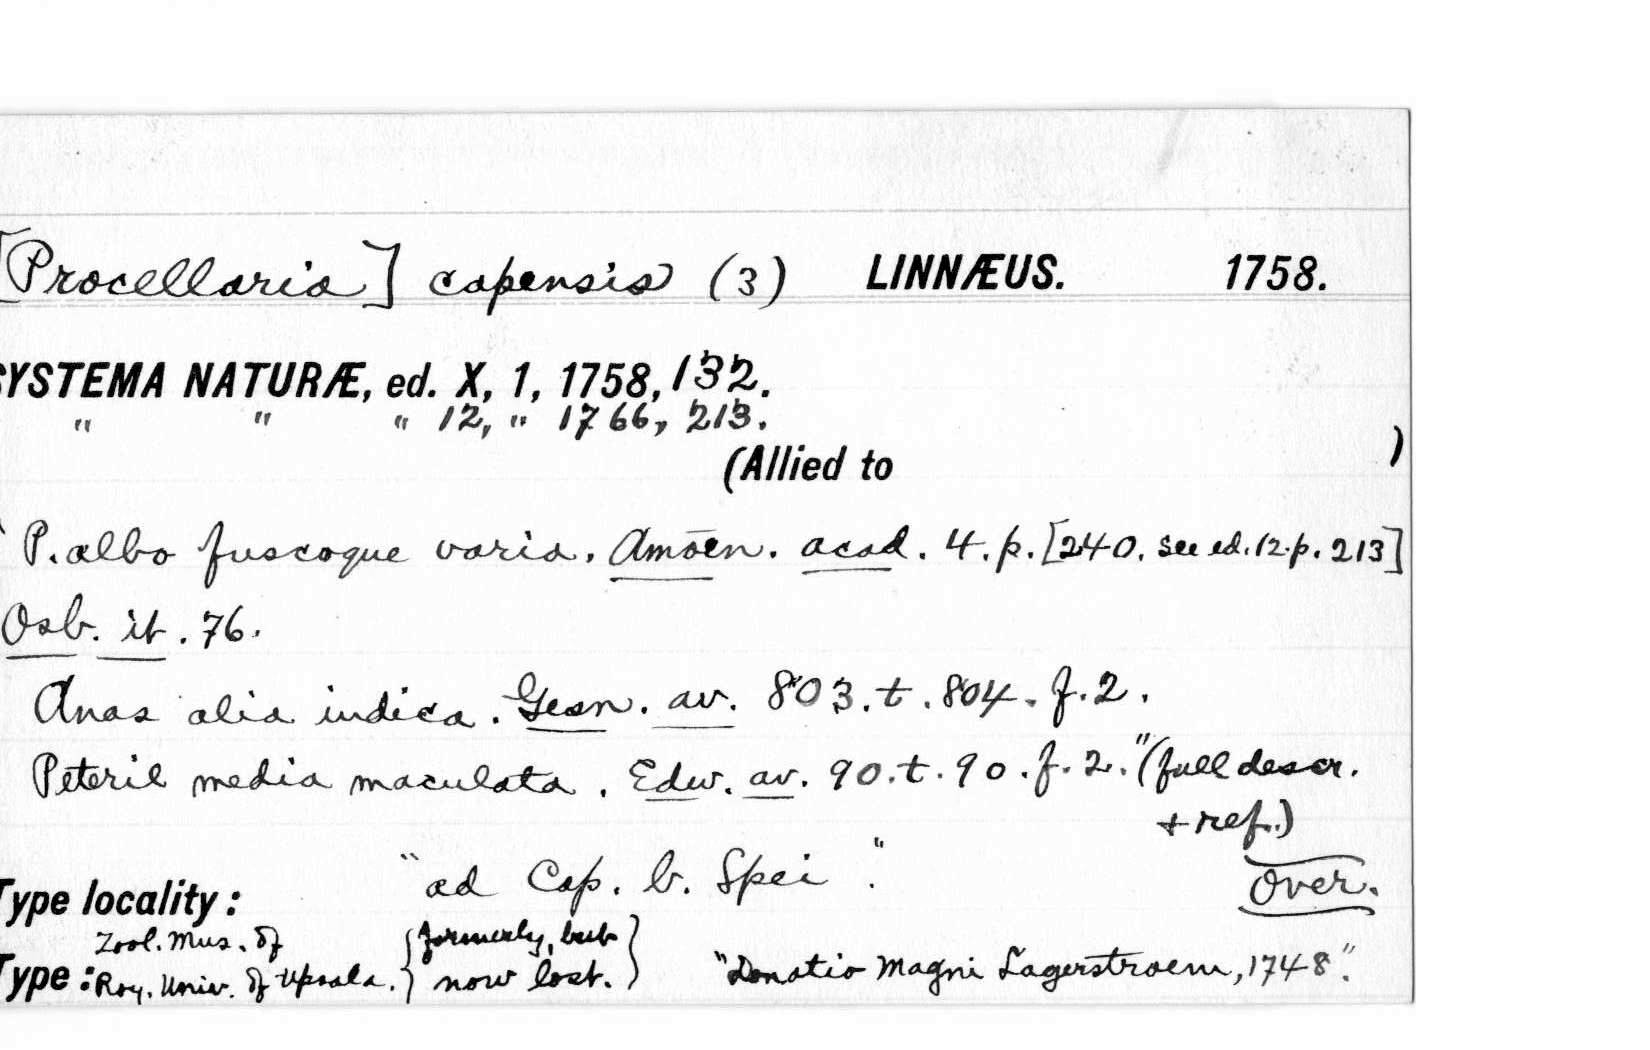 [Procellaria] capensis (3) LINNÆUS. 1758.
SYSTEMA NATURÆ, ed. X, 1, 1758, 132.
" " " 12, " 1766, 213.
(Allied to )
P. albo fuscoque varia. Amōen. acad. 4. p. [240. see ed. 12. p. 213]
Osb. it. 76.
Anas alia indica. Gesn. av. 803. t. 804. f. 2.
Peteril media maculata. Edw. av. 90. t. 90. f. 2." (full descr.
+ ref.)
Type locality: "ad Cap. b. Spei". Over.
Type: Zool. Mus. of Roy. Univ. of Upsala. {formerly, but now lost.} "Donatio Magni Lagerstroem, 1748".